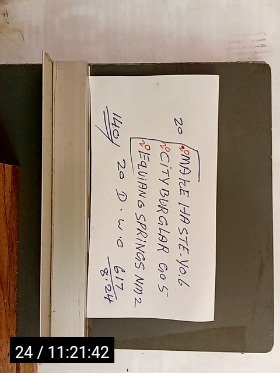 20
MAKE HASTE. YO. 6
20 CITY BURGLAR GO 5
20 EQUIANO SPRINGS N/O 2
1404 20 D. W. G 617
8.24
24 / 11:21:42